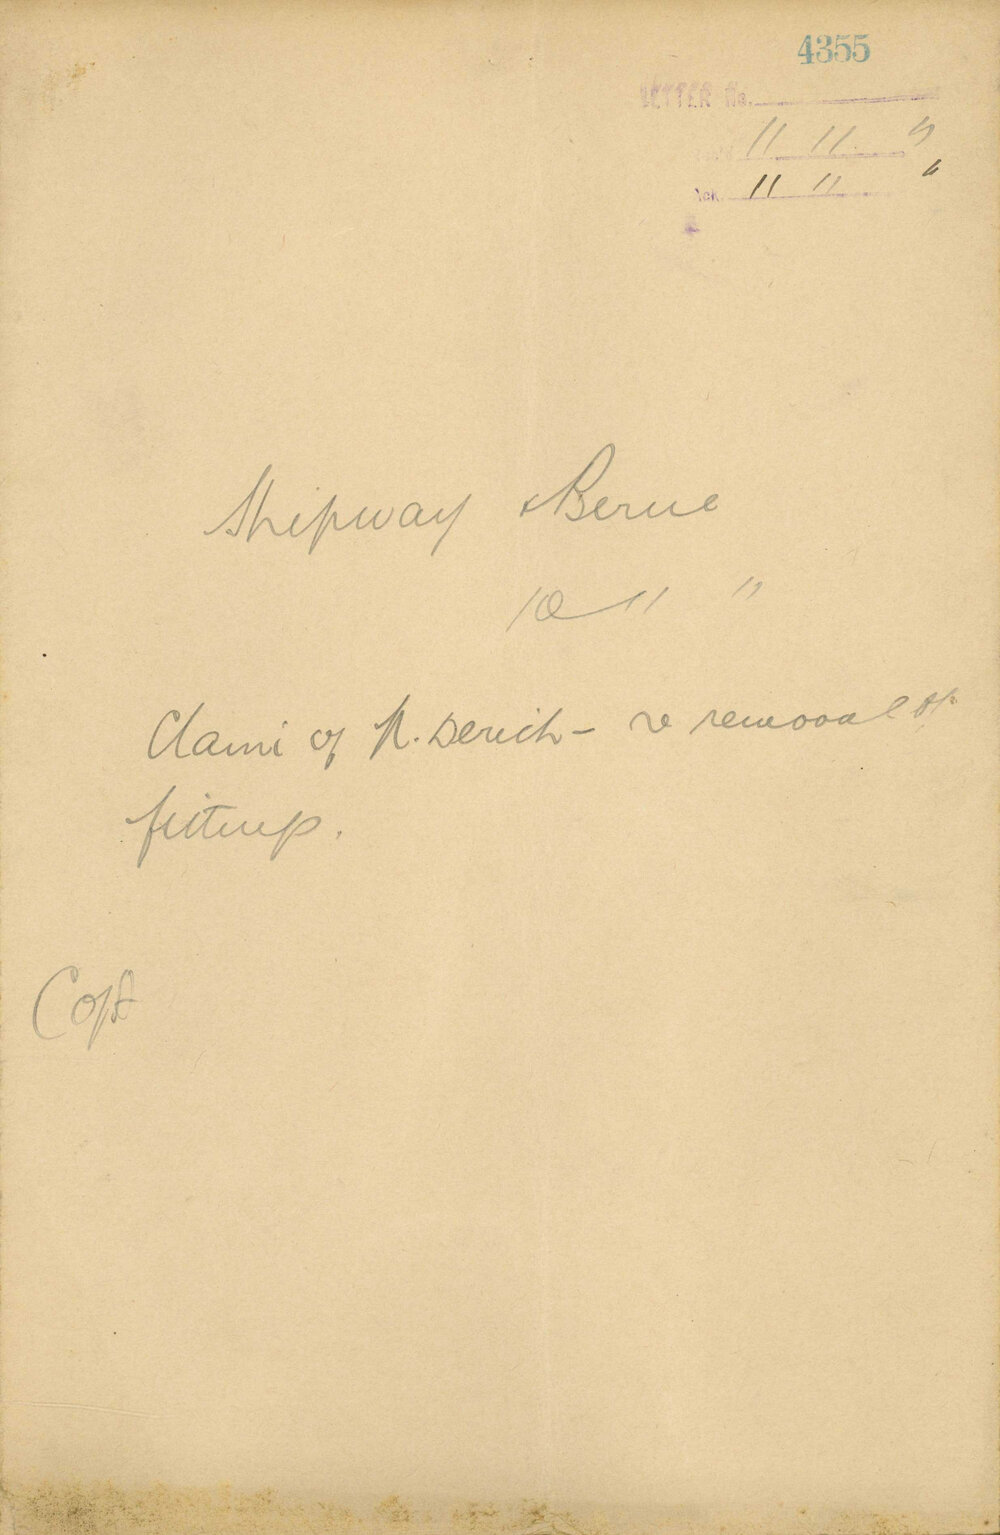 4355
LETTER No.
11 11 "
Ack. 11 11 "
Shipway & Berne
10 11 "
Claim of N. Derich - re removal of
fittings.